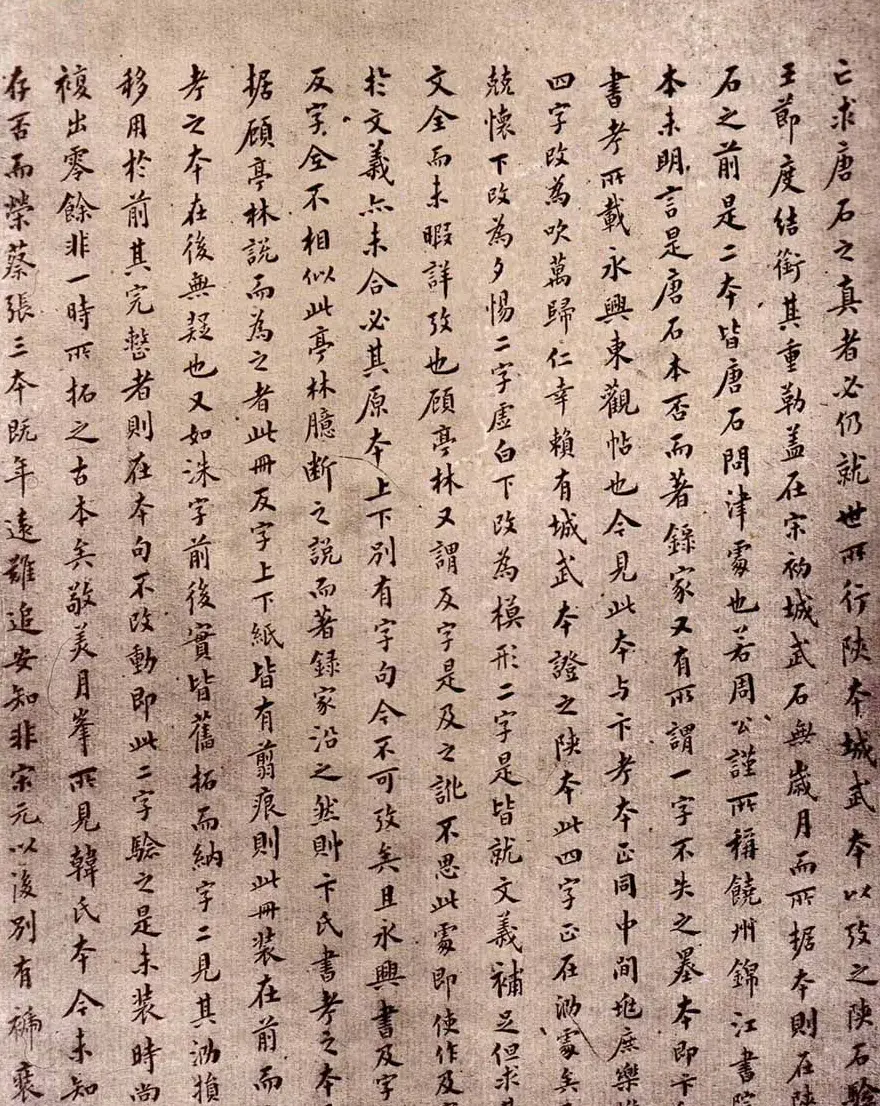 亡求唐石之真者必仍就世所行陝本城武本以攷之陝石驗
王節度結銜其重勒蓋在宋初城武石無歲月而所据本則在陝
石之前是二本皆唐石問津處也若周公謹所稱饒州錦江書院
本未明言是唐石本否而著錄家又有所謂一字不失之墨本即卞
書考所載永興東觀帖也今見此本与卞考本正同中間虺庶樂推
四字改為吹萬歸仁幸賴有城武本證之陝本此四字正在泐處矣
兢懷下改為夕惕二字虛白下改為模形二字是皆就文義補足但求其
文全而未暇詳攷也顧亭林又謂反字是及之訛不思此處即使作及字
於文義亦未合必其原本上下別有字句今不可攷矣且永興書及字
反字全不相似此亭林臆斷之說而著錄家沿之然則卞氏書考之本
据顧亭林說而為之者此冊反字上下紙皆有翦痕則此冊裝在前而
考之本在後無疑也又如洙字前後實皆舊拓而納字二見其泐損
移用於前其完整者則在本句不改動即此二字驗之是未裝時尚
複出零餘非一時所拓之古本矣敬美月峯所見韓氏本今未知
存否而榮蔡張三本既年遠難追安知非宋元以後別有裱裹